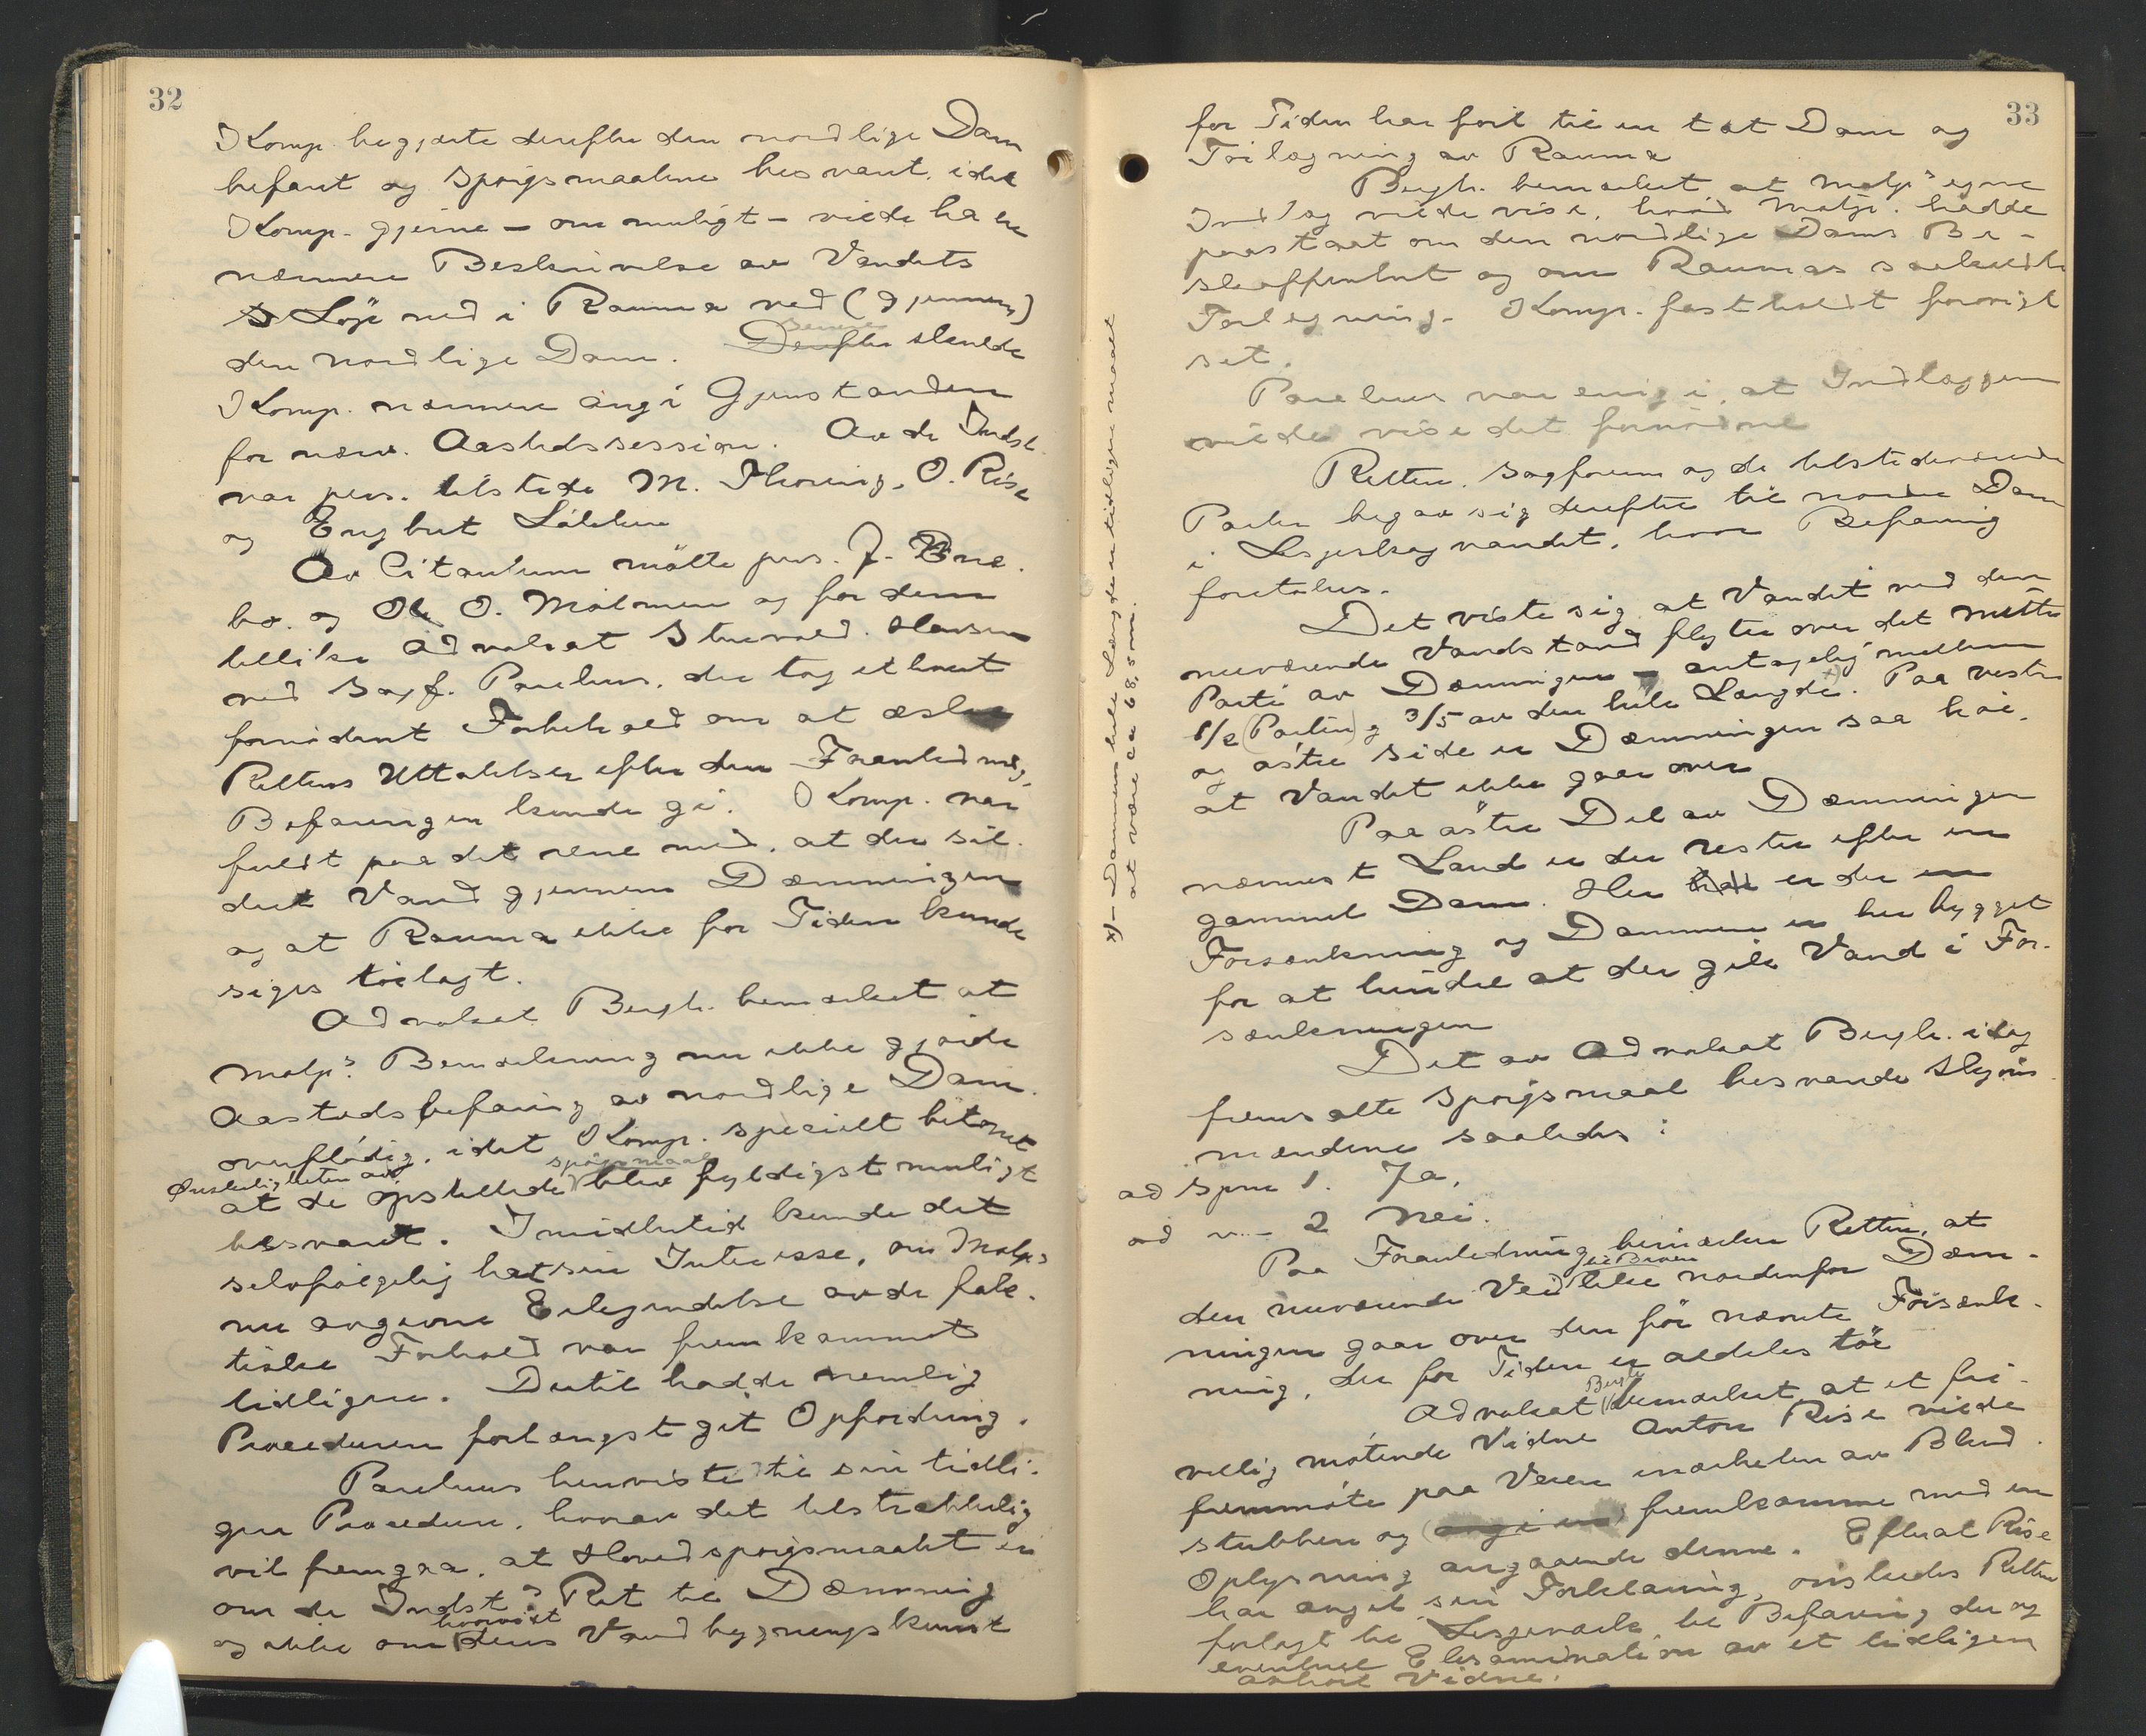 32
Komp. begjærte derefter den nordlige Dam
befaret og Spørgsmaalene besvaret, idet
Komp. gjerne – om muligt – vilde ha en
nærmere Beskrivelse av Vandets
Løp ned i Rauma ved (gjennem)
den nordlige Dam. Senere skulde
Komp. nærmere angi Gjenstanden
for nærv. Aastedssession. Av de Indst.
var pers. tilstede M. Thoring, O. Rise
og Engbret
Av Citanterne møtte pers. J.
bo. og Ole O. Molmen og for dem
tillike Advokat Hansen
ved Sagf. Paulus, der tog ethvert
fornødent Forbehold om at æske
Rettens Uttalelser efter den Foranledning,
Befaringen kunde gi. Komp. var
fuldt paa det rene med, at der sil-
dret Vand gjennem Dæmningen
og at Rauma ikke for Tiden kunde
siges tørlagt.
Advokat Bergh. bemerket at
Motp.s Bemerkning nu ikke gjorde
Aastedsbefaring av nordlige Dam
overflødig, idet Komp. specielt betonet
Ønskeligheten av
at de opstillede spørgsmaal blev fyldigst muligt
besvaret. Imidlertid kunde det
selvfølgelig hat sin Interesse, om Motp.s
nu avgivne Erkjendelse av de fak-
tiske Forhold var fremkommet
tidligere. Dertil hadde nemlig
Proceduren forlængst git Opfordring.
Paulus henviste til sin tidli-
gere Procedure, hvorav det tilstrækkelig
vil fremgaa, at Hovedspørgsmaalet er
om de Indst.s Ret til Dæmning
og ikke om hvorvidt deres Vandbygningskunst
33
for Tiden har ført til en tæt Dam og
Tørlægning av Rauma
Bergh. bemerket, at Motp.s egne
Indlæg vilde vise, hvad Motp. hadde
paastaat om den nordlige Dams Be-
skaffenhet og om Raumas saakaldte
Tørlægning. Komp. fastholdt forøvrigt
sit.
Paulus var enig i, at Indlæggene
vilde vise det fornødne
Retten, Sagførerne og de tilstedeværende
Parter begav sig derefter til nordre Dam
i Lesjeskogvandet, hvor Befaring
foretokes.
Det viste sig, at Vandet med den
nuværende Vandstand flyter over det midtre
Parti av Dæmningen – antagelig mellem
1/2 (Parten) og 3/5 av den hele Længde x). Paa vestre
og østre Side er Dæmningen saa høi,
at Vandet ikke gaar over
Paa østre Del av Dæmningen
nærmest Land er der rester efter en
gammel Dam. Her er der en
Forsænkning og Dammen er her bygget
for at hindre at der gik Vand i For-
sænkningen
Det av Advokat Bergh. idag
fremsatte Spørgsmaal besvarede Skjøns-
mændene saaledes:
ad Spm 1. Ja,
ad –"– 2 Nei.
Paa Foranledning bemerker Retten, at
den nuværende Vei til Broen like nordenfor Dæm-
ningen gaar over den før nævnte Forsænk-
ning, der for Tiden er aldeles tør
Advokat Bergh bemerket, at et fri-
villig møtende Vidne Anton Rise vilde
fremmøte paa Veien i nærheten av Blind-
stubben og fremkomme med en
Oplysning angaaende denne. Efterat Rise
har avgit sin Forklaring, ønskedes Retten
forlagt til Lesjeverk til Befaring der og
eventuel Eksamination av et tidligere
avhørt Vidne.
x) – Dammens hele Længde er tidligere maalt
at være ca 68,5 m.